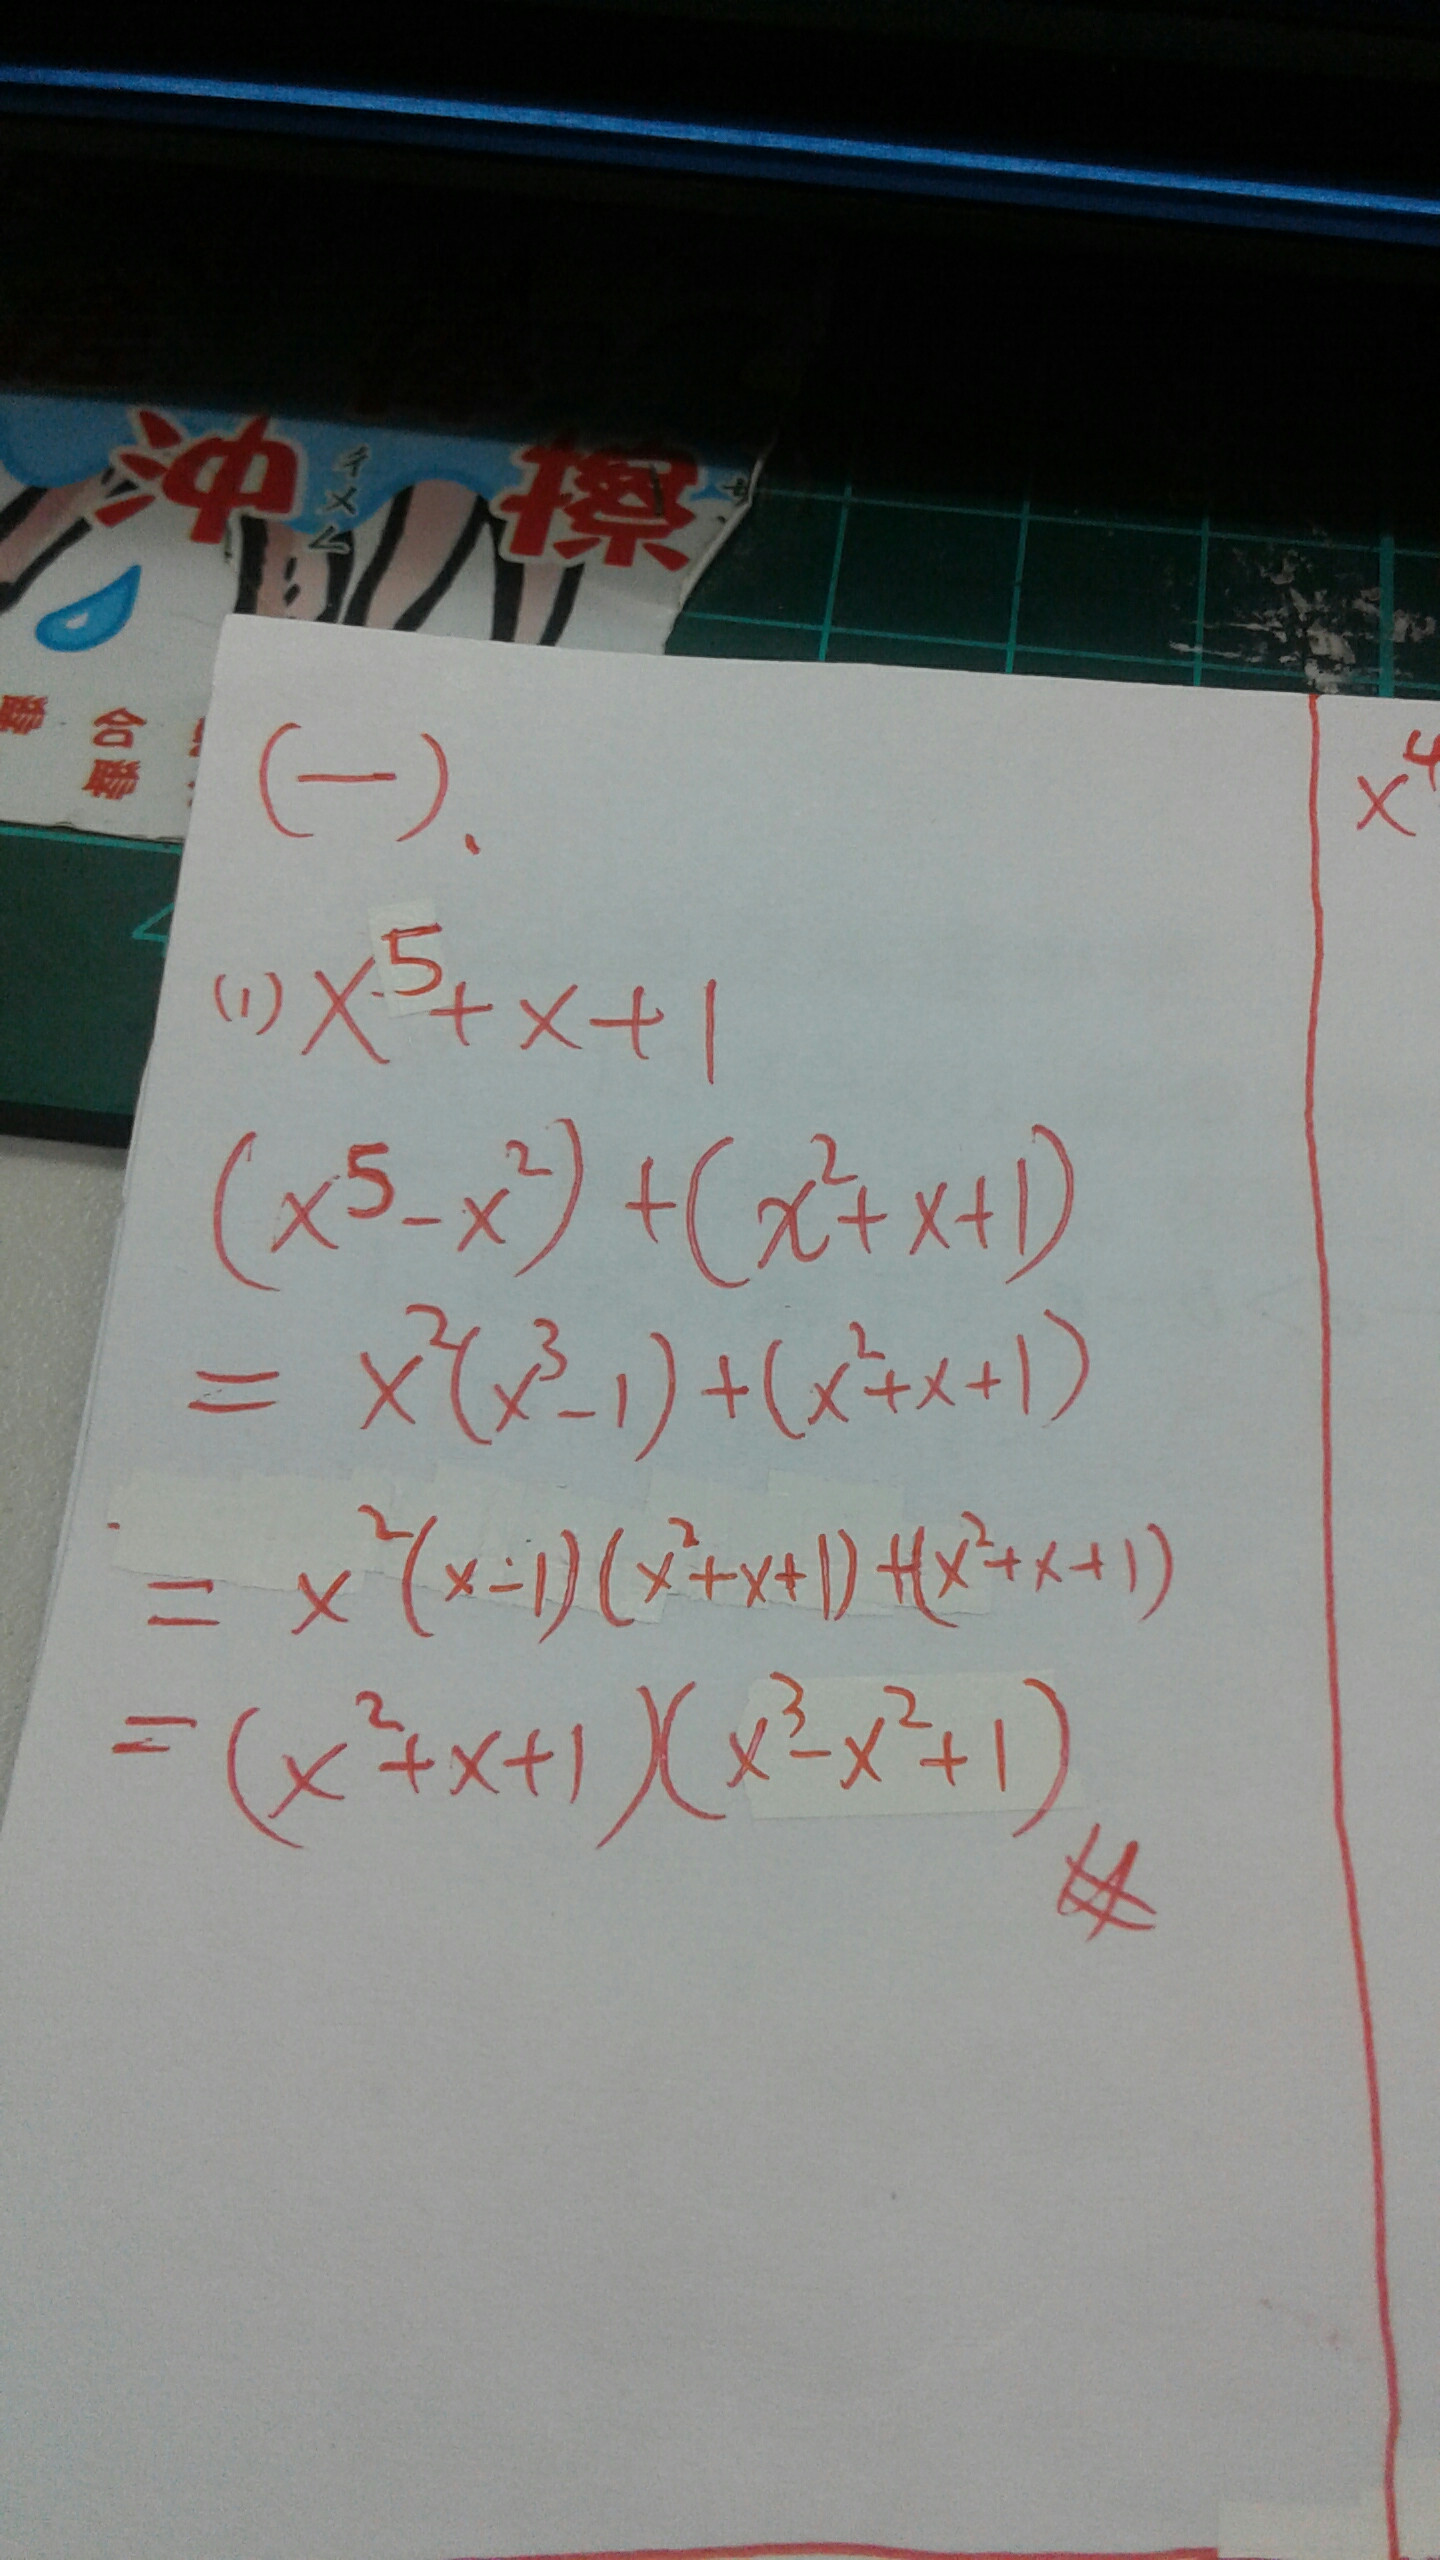 沖 ㄔㄨㄥ 擦
(一).
(1) x⁵+x+1
(x⁵-x²)+(x²+x+1)
= x²(x³-1)+(x²+x+1)
= x²(x-1)(x²+x+1)+(x²+x+1)
=(x²+x+1)(x³-x²+1)
x⁴